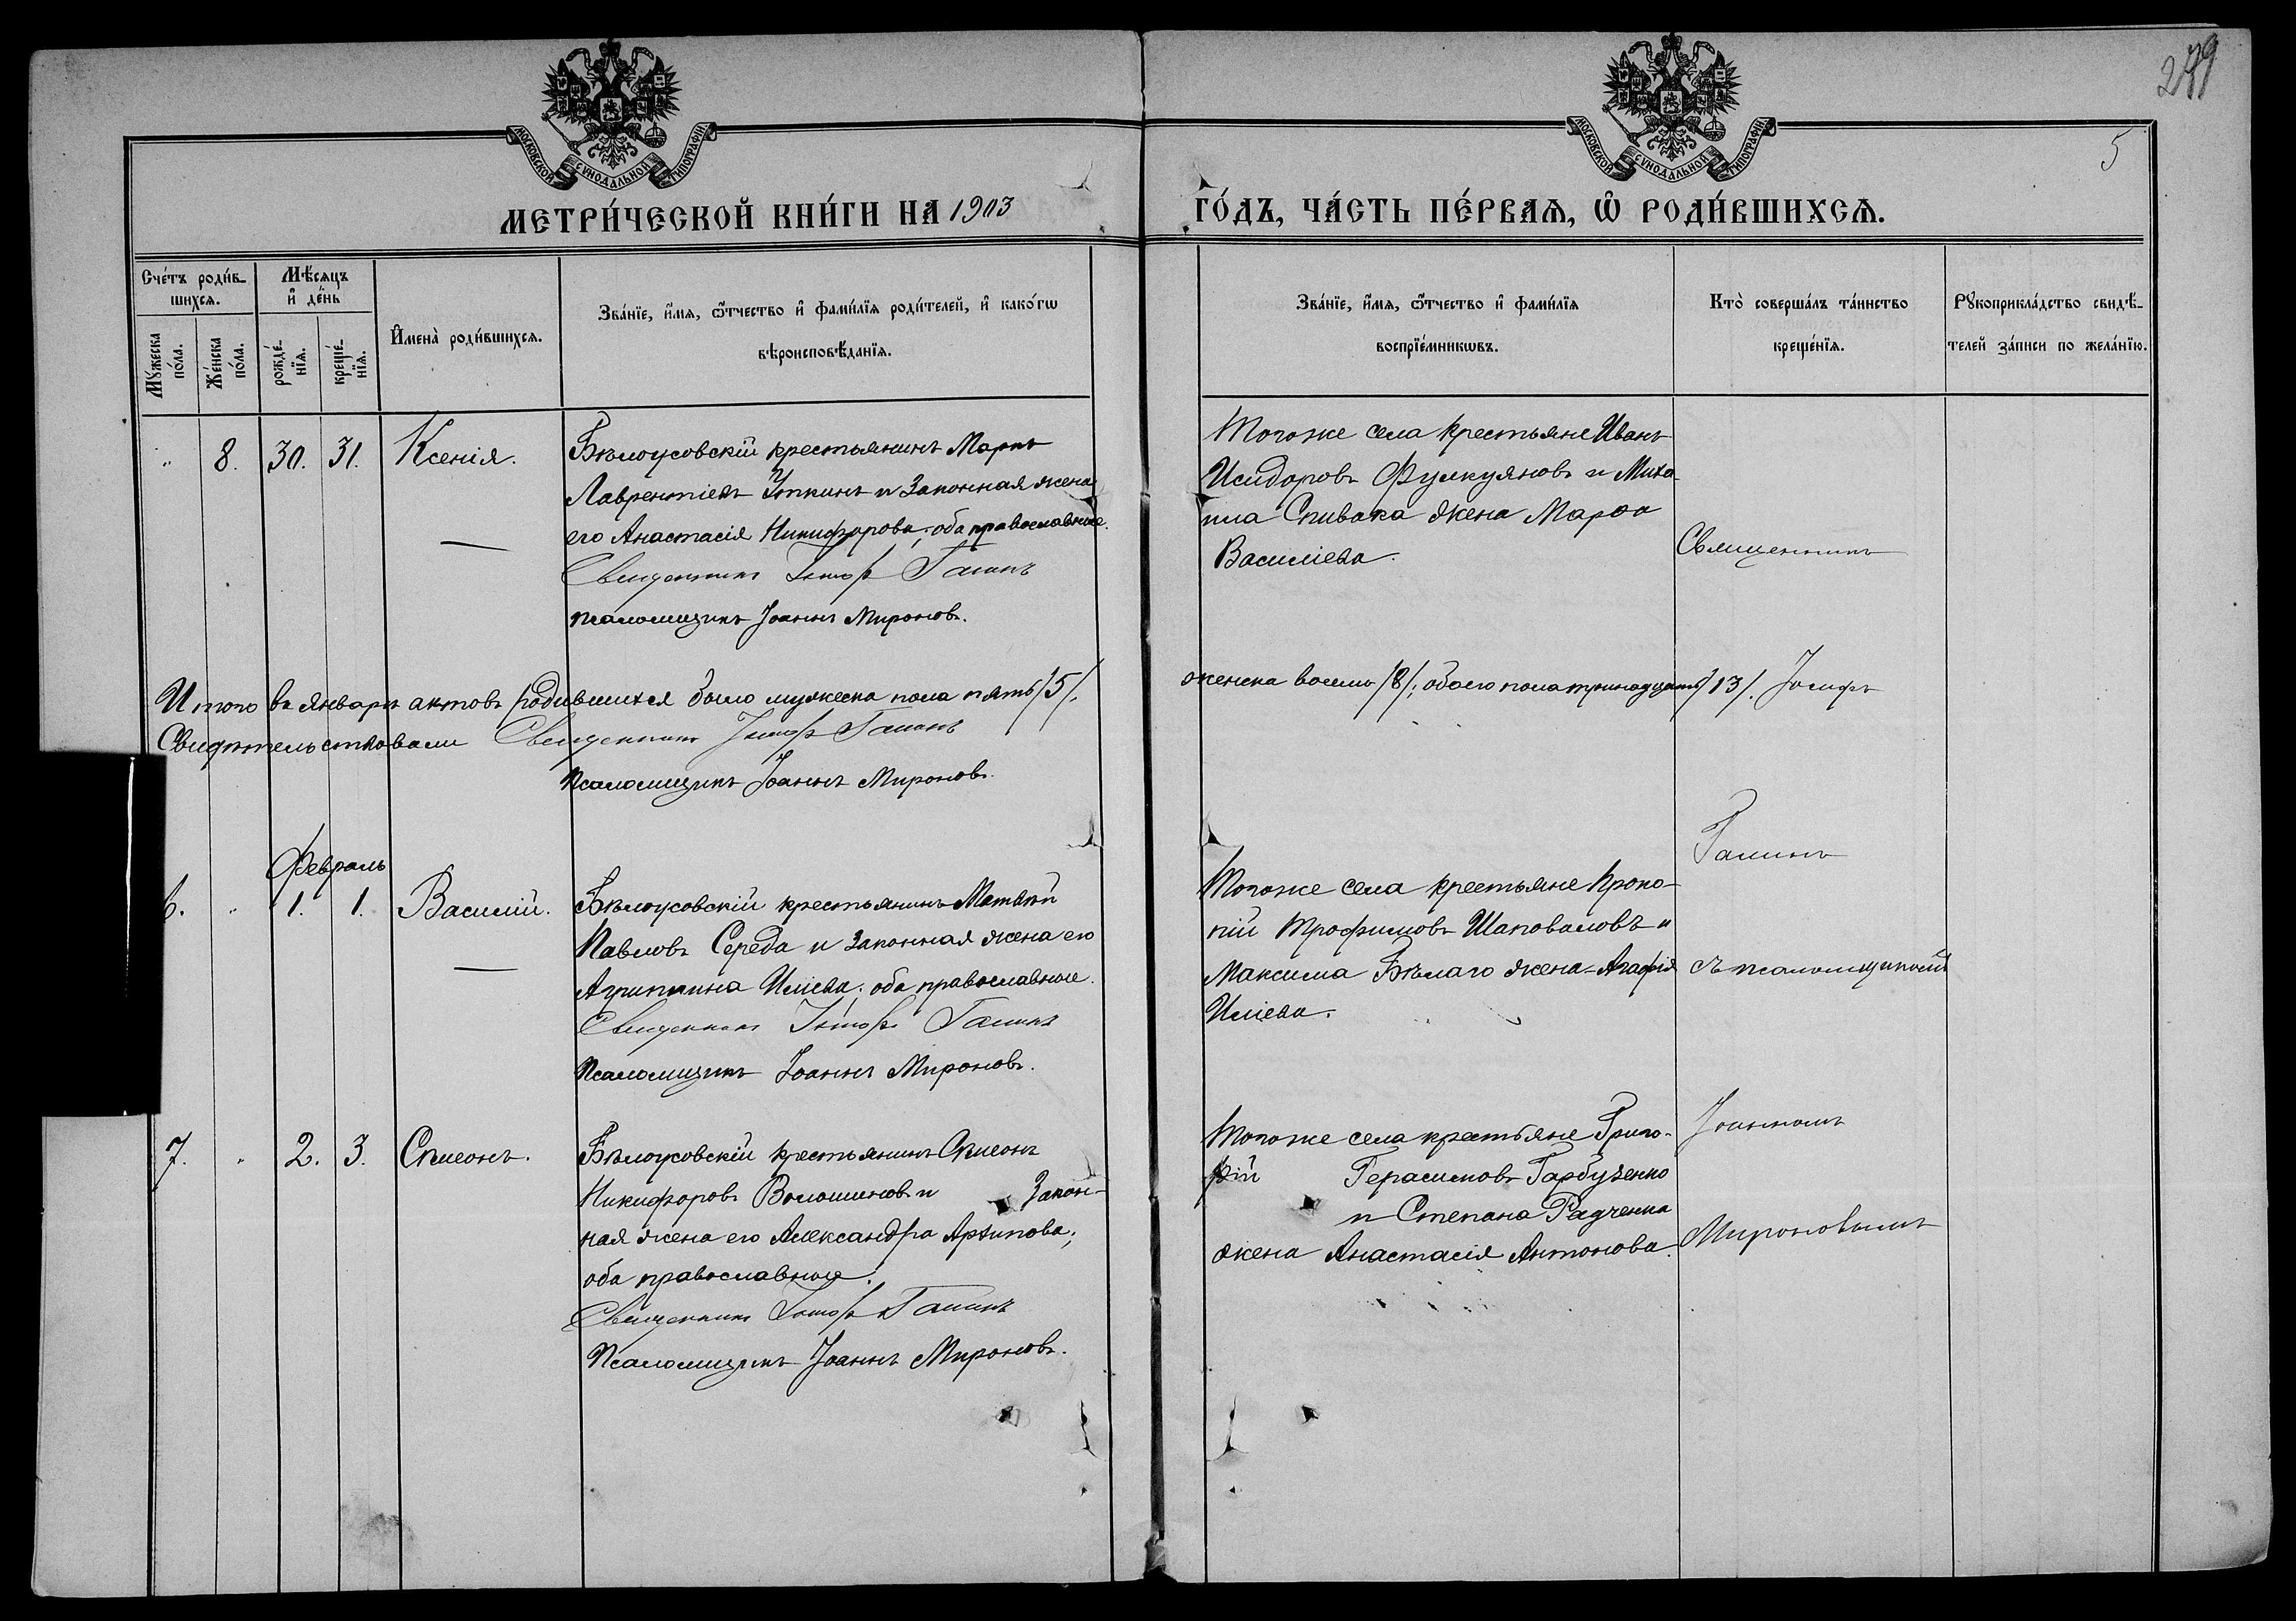 279
5
МОСКОВСКОЙ СѴНОДАЛЬНОЙ ТИПОГРАФІИ.
МОСКОВСКОЙ СѴНОДАЛЬНОЙ ТИПОГРАФІИ.
МЕТРИ́ЧЕСКОЙ КНИ́ГИ НА 1903
ГО́ДЪ, ЧА́СТЬ ПЕ́РВАѦ, Ѡ҆ РОДИ́ВШИХСѦ.
Сче́тъ роди́в-
шихсѧ.
Мꙋ́жеска
по́ла.
Же́нска
по́ла.
Мѣ́сѧцъ
и҆ де́нь
рожде́-
нїѧ.
креще́-
нїѧ.
И҆мена̀ роди́вшихсѧ.
Зва́нїе, и҆́мѧ, ѻ҆́тчество и҆ фами́лїѧ роди́телей, и҆ како́гѡ
вѣроисповѣ́данїѧ.
Зва́нїе, и҆́мѧ, ѻ҆́тчество и҆ фами́лїѧ
воспрїе́мникѡвъ.
Кто̀ соверша́лъ та́инство
креще́нїѧ.
Рꙋкоприкла́дство свидѣ́-
телей за́писи по жела́нїю.
" 8. 30. 31. Ксенія.
Бѣлоусовскій крестьянинъ Маркъ
Лаврентіевъ Уткинъ и законная жена
его Анастасія Никифорова; оба православные.
Священникъ Іосифъ Галинъ
псаломщикъ Іоаннъ Мироновъ.
Тогоже села крестьяне Иванъ
Исидоровъ и Миха-
ила Спивака жена Марѳа
Василіева.
Священникъ
Итого въ январѣ актовъ родившихся было мужеска пола пять /5/,
женска восемь /8/; обоего пола тринадцать /13/. Іосифъ
Свидѣтельствовали Священникъ Іосифъ Галинъ
Псаломщикъ Іоаннъ Мироновъ.
Галинъ
Февраль
6. " 1. 1. Василій.
Бѣлоусовскій крестьянинъ Матвѣй
Павловъ Середа и законная жена его
Агриппина Иліева; оба православные.
Священникъ Іосифъ Галинъ
Псаломщикъ Іоаннъ Мироновъ.
Тогоже села крестьяне Проко-
пій Трофимовъ Шаповаловъ и
Максима Бѣлаго жена Агафія
Иліева.
съ псаломщикомъ
7. " 2. 3. Сѵмеонъ.
Бѣлоусовскій крестьянинъ Сѵмеонъ
Никифоровъ Волошиновъ и закон-
ная жена его Александра Архипова;
оба православные.
Священникъ Іосифъ Галинъ
Псаломщикъ Іоаннъ Мироновъ.
Тогоже села крестьяне Григо-
рій Герасимовъ Гарбузенко
и Степана Радченка
жена Анастасія Антонова.
Іоанномъ
Мироновымъ